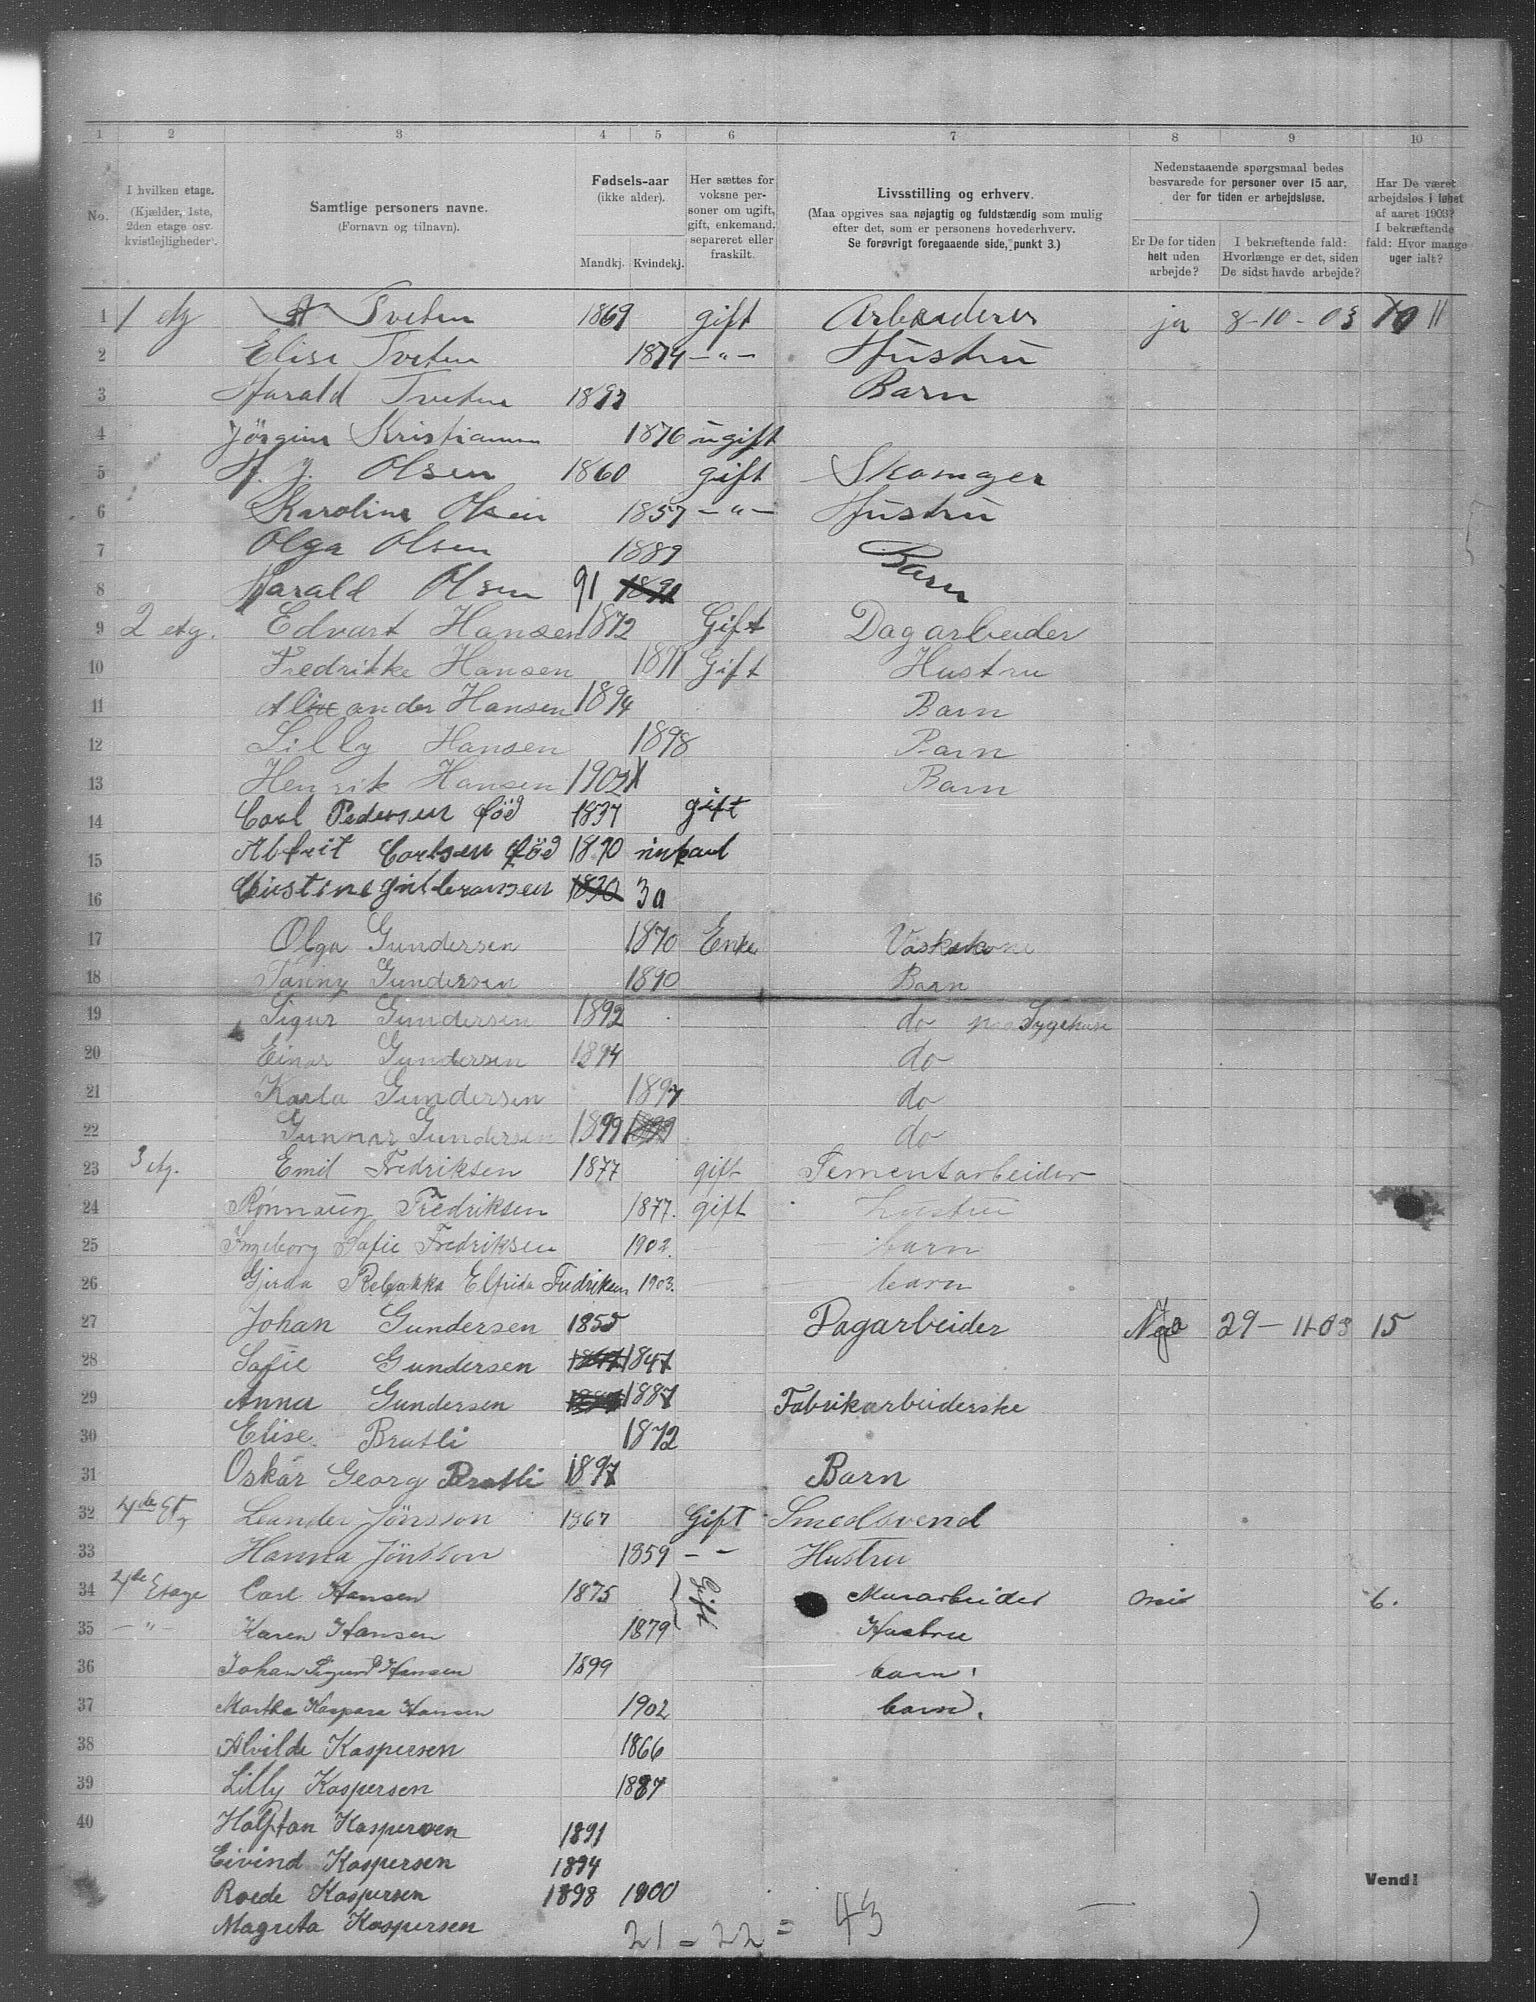 1 2 3 4 5 6 7 8 9 10
No.
I hvilken etage.
(Kjælder, 1ste, 2den etage osv. kvistlejligheder).
Samtlige personers navne.
(Fornavn og tilnavn).
Fødsels-aar
(ikke alder).
Mandkj. Kvindekj.
Her sættes for voksne personer om ugift, gift, enkemand, separeret eller fraskilt.
Livsstilling og erhverv.
(Maa opgives saa nøjagtig og fuldstændig som mulig efter det, som er personens hovederhverv.
Se forøvrigt foregaaende side, punkt 3.)
Nedenstaaende spørgsmaal bedes besvarede for personer over 15 aar, der for tiden er arbejdsløse.
Er De for tiden helt uden arbejde?
I bekræftende fald: Hvorlænge er det, siden De sidst havde arbejde?
Har De været arbejdsløs i løbet af aaret 1903? I bekræftende fald: Hvor mange uger ialt?
1 1 etg Tveten 1869 gift ja 8-10-03 10 11
2 Elise Tveten 1874 -"- Hustru
3 Harald Tveten 1897 Barn
4 Jörgine 1876 ugift
5 H. J. Olsen 1860 gift Skomager
6 Karoline Olsen 1857 -"- Hustru
7 Olga Olsen 1889 Barn
8 Harald Olsen 91 1891
9 2 etg. Edvart Hansen 1872 Gift Dagarbeider
10 Fredrikke Hansen 1871 Gift Hustru
11 Alixander Hansen 1894 Barn
12 Lilly Hansen 1898 Barn
13 Henrik Hansen 1902 Barn
14 Carl Pedersen föd 1837 gift
15 Carlsen föd 1870
16 1830 30
17 Olga Gundersen 1870 Enke Vaskekone
18 Fanny Gundersen 1890 Barn
19 Sigur Gundersen 1892 do paa Sygehuse
20 Einar Gundersen 1894 do
21 Karla Gundersen 1897 do
22 Gunnar Gundersen 1899 1899 do
23 3 etg. Emil Fredriksen 1877 gift Sementarbeider
24 Rønnaug Fredriksen 1877. gift hustru
25 Ingeborg Sofie Fredriksen 1902. barn
26 Gjerda Rebakka Elfrida Fredriksen 1903. barn
27 Johan Gundersen 1855 Dagarbeider 29-11-03 15
28 Safie Gundersen 1847 1847
29 Anna Gundersen 1887 Fabrikarbeiderske
30 Elise Bratli 1872
31 Oskar Georg Bratli 1897 Barn
32 4de Etg Leander Jönsson 1867 Gift Smedsvend
33 Hanna Jönsson 1859 - - Hustru
34 4de Etage Carl Hansen 1875 Gift Murarbeider nei 6.
35 -"- Karen Hansen 1879 Hustru
36 Johan Sigurd Hansen 1899 barn.
37 Martha Kaspara Hansen 1902 barn.
38 Alvilde Kaspersen 1866
39 Lilly Kaspersen 1887
40 Halftan Kaspersen 1891
Eivind Kaspersen 1894
Roede Kaspersen 1898 1900
Magreta Kaspersen
21 - 22 = 43
Vend!